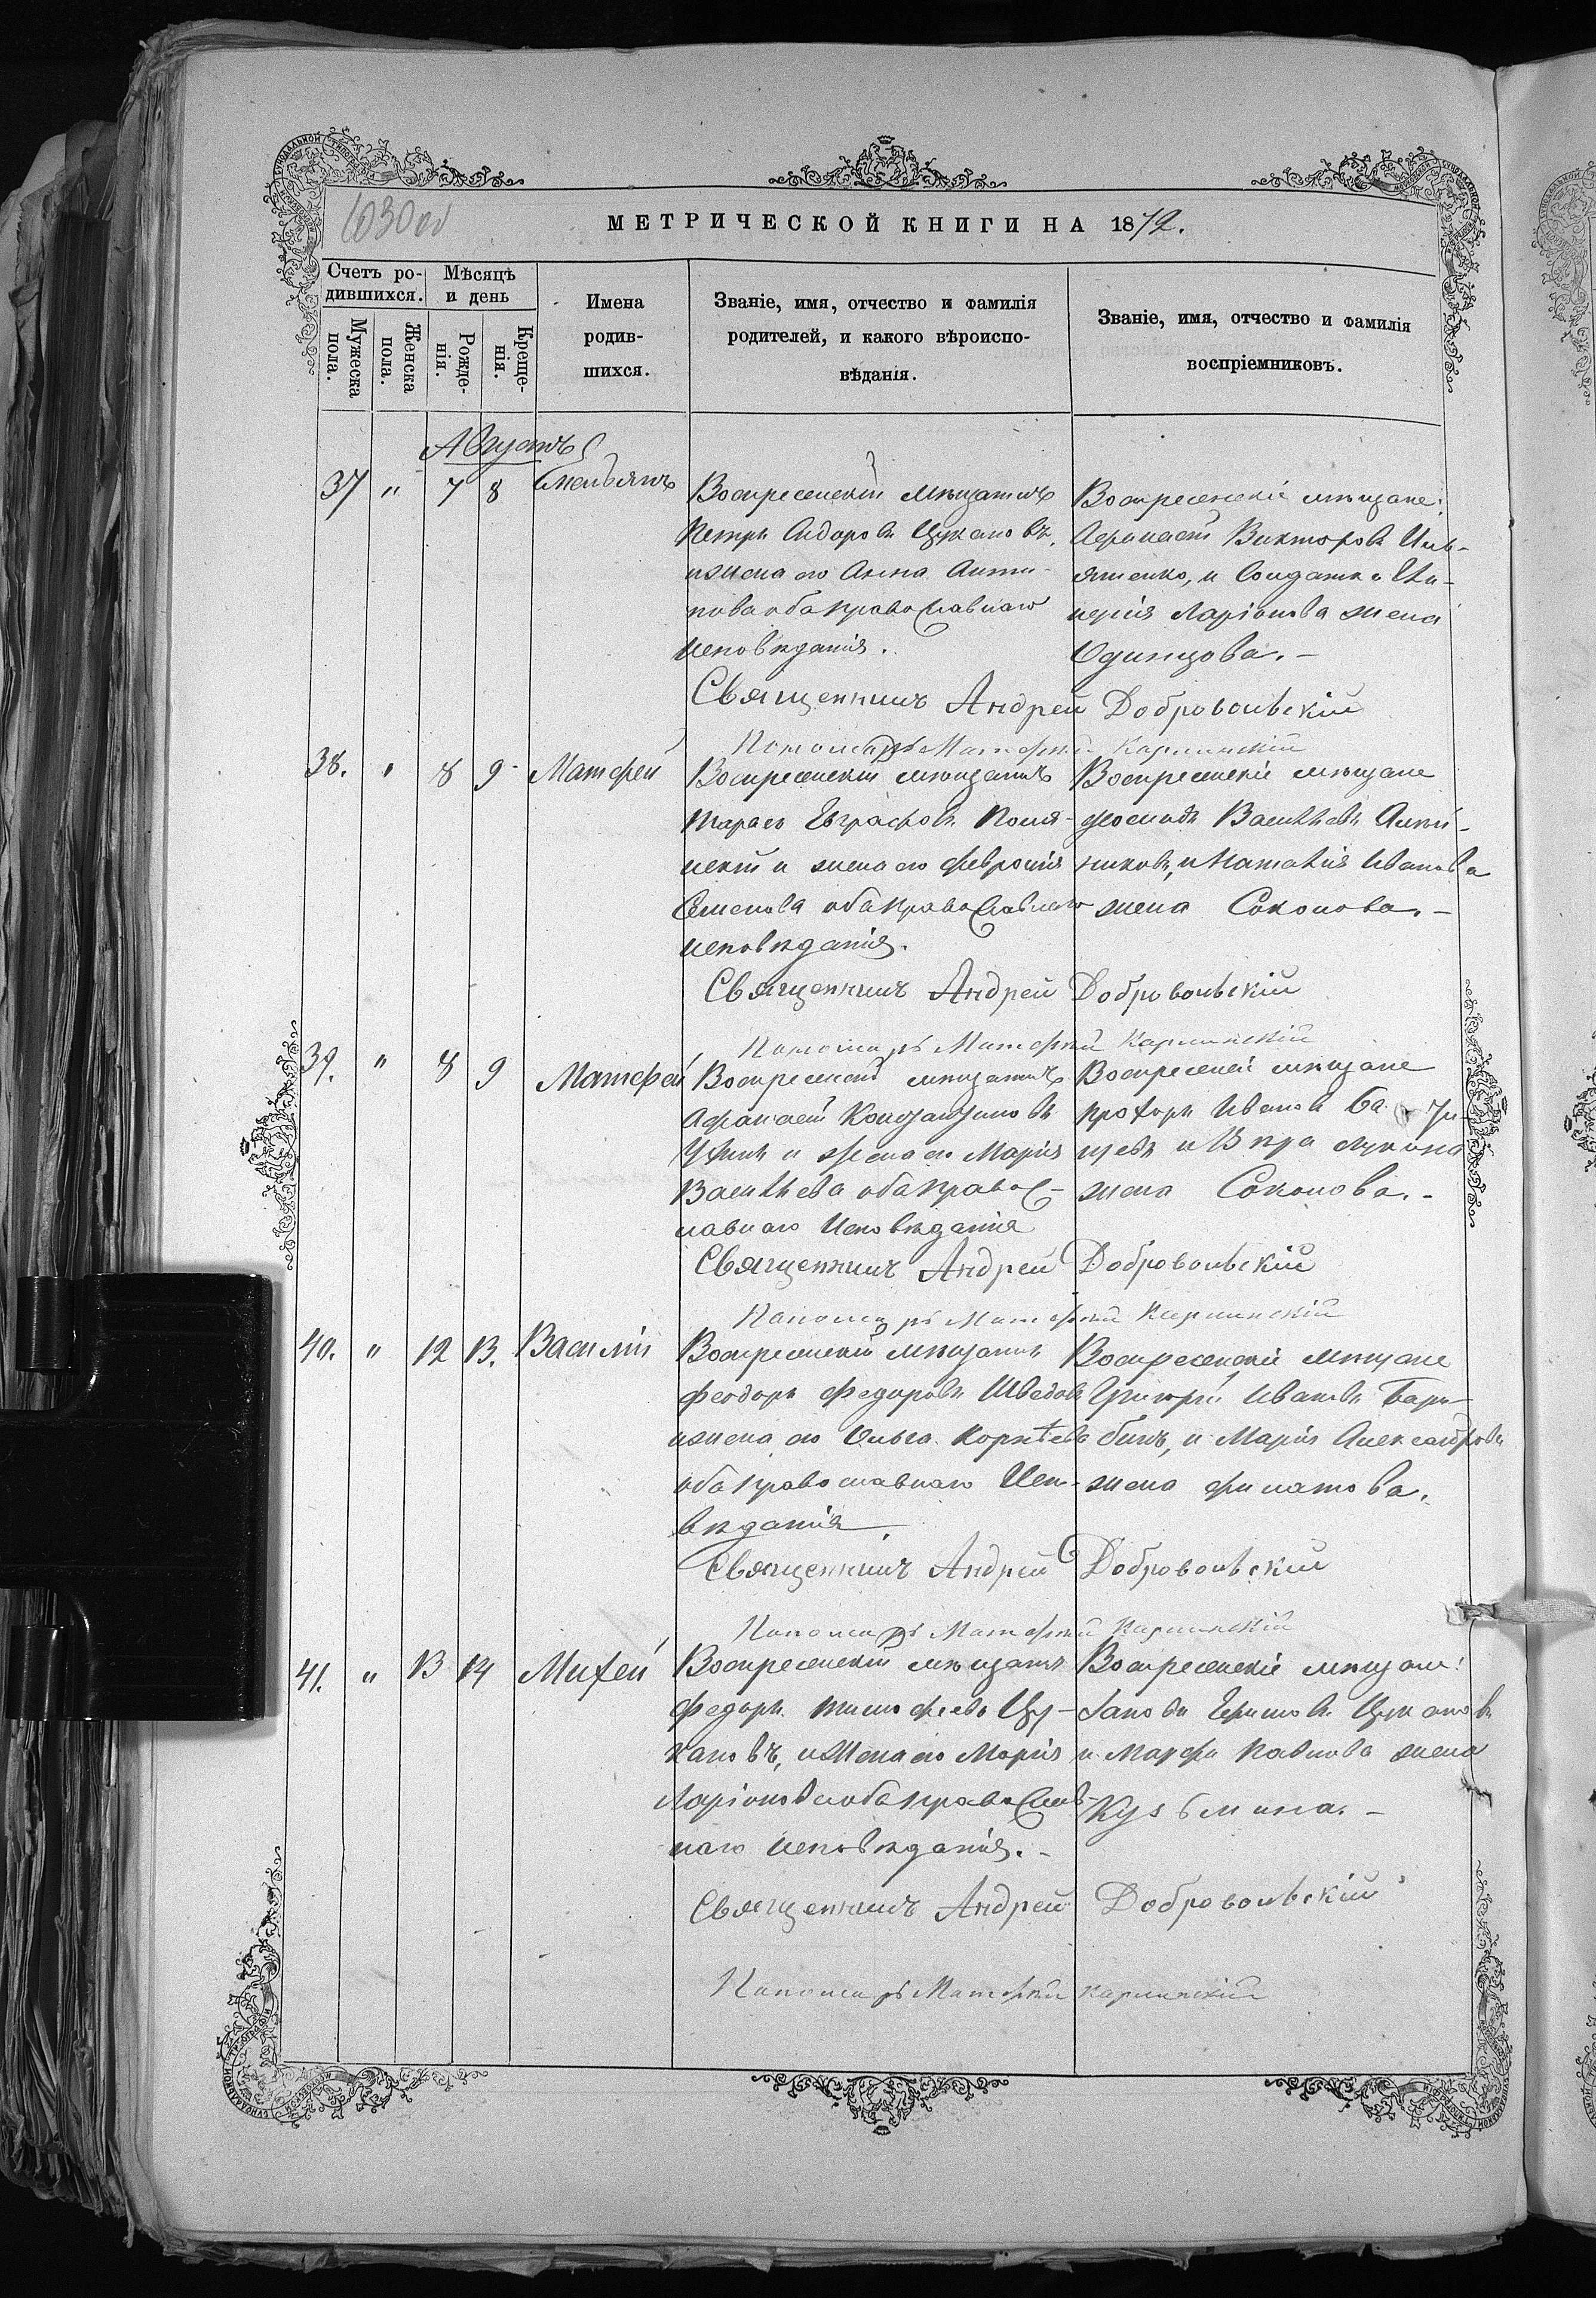 1030 об
МЕТРИЧЕСКОЙ КНИГИ НА 1872.
Счетъ ро-
дившихся.
Мужеска
пола.
Женска
пола.
Мѣсяцъ
и день
Рожде-
нія.
Креще-
нія.
Имена
родив-
шихся.
Званіе, имя, отчество и фамилія
родителей, и какого вѣроиспо-
вѣданія.
Званіе, имя, отчество и фамилія
воспріемниковъ.
Августъ
37 " 7 8 Емельянъ
Воскресенскій мѣщанинъ
Петръ Сидоровъ Цукановъ,
и жена его Анна Анти-
пова оба православнаго
исповѣданія.
Воскресенскіе мѣщане:
Афанасій Викторовъ
и Солдатка
Ларіонова жена
Одинцова. –
Священникъ Андрей Добровольскій
Пономарь Матфей Карпинскій
38. " 8 9 Матфей
Воскресенскій мѣщанинъ
Тарасъ Евграфовъ Поля-
нскій и жена его Февронія
Семенова оба православнаго
исповѣданія.
Воскресенскіе мѣщане
Васильевъ
никовъ, и Наталія Иванова
жена Соколова. –
Священникъ Андрей Добровольскій
Пономарь Матфей Карпинскій
39. " 8 9 Матфей
Воскресенскій мѣщанинъ
Афанасій
и жена его Марія
Васильева оба правос-
лавнаго Исповѣданія
Воскресенскіе мѣщане
Прохоръ Ивановъ
щевъ и Вѣра Лукина
жена Соколова. –
Священникъ Андрей Добровольскій
Пономарь Матфей Карпинскій
40. " 12 13. Василій
Воскресенскій мѣщанинъ
Феодоръ Федоровъ Шведовъ
и жена его Ольга Корнѣева
оба православнаго Испо-
вѣданія.
Воскресенскіе мѣщане
Григорій Ивановъ Бары-
бинъ, и Марія Александрова
жена Филатова.
Священникъ Андрей Добровольскій
Пономарь Матфей Карпинскій
41. " 13 14 Михей
Воскресенскій мѣщанинъ
Федоръ Тимофеевъ Цу-
кановъ, и жена его Марія
Ларіонова оба православ-
наго исповѣданія. –
Воскресенскіе мѣщане:
Іаковъ Цукановъ
и Марфа Павлова жена
Кузьмина. –
Священникъ Андрей Добровольскій
Пономарь Матфей Карпинскій